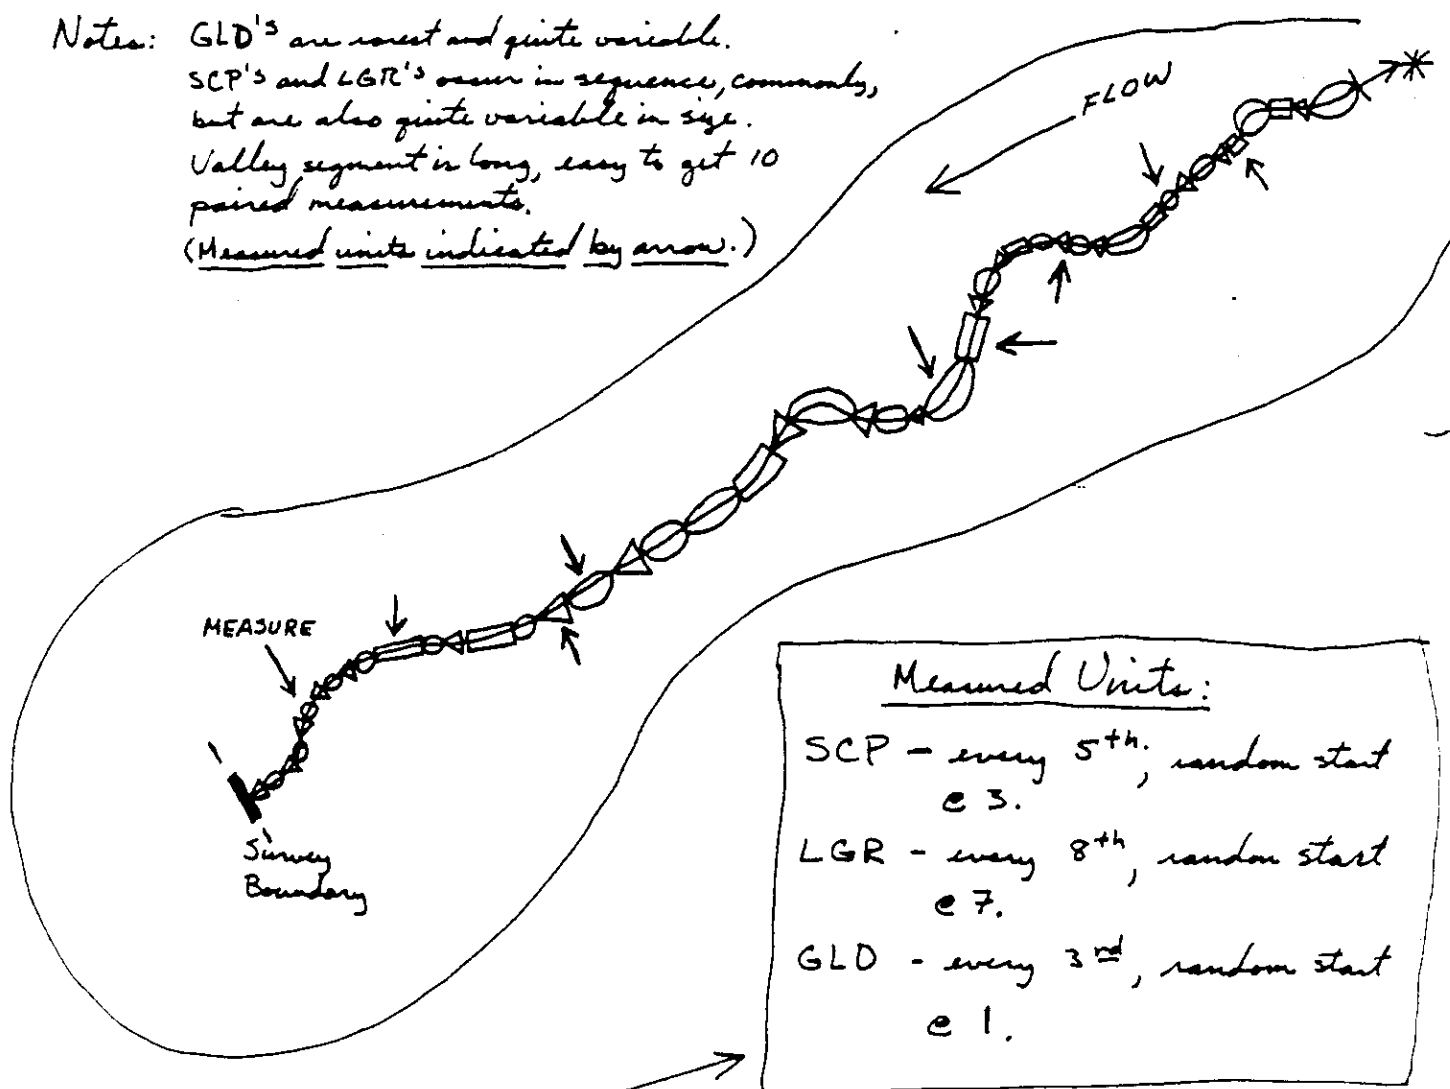 Notes: GLD's are rarest and quite variable.
SCP's and LGR's occur in sequence, commonly,
but are also quite variable in size.
Valley segment is long, easy to get 10
paired measurements.
(Measured units indicated by arrow.)
FLOW
MEASURE
Survey
Boundary
Measured Units:
SCP - every 5th, random start
@ 3.
LGR - every 8th, random start
@ 7.
GLD - every 3rd, random start
@ 1.